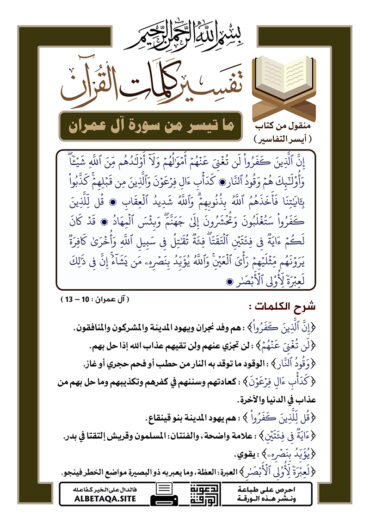 بسم الله الرحمن الرحيم
تفسير كلمات القرآن
منقول من كتاب
( أيسر التفاسير )
ما تيسر من سورة آل عمران
إِنَّ ٱلَّذِينَ كَفَرُواْ لَن تُغْنِىَ عَنْهُمْ أَمْوَٰلُهُمْ وَلَآ أَوْلَٰدُهُم مِّنَ ٱللَّهِ شَيْـًٔا ۖ
وَأُوْلَٰٓئِكَ هُمْ وَقُودُ ٱلنَّارِ ۞ كَدَأْبِ ءَالِ فِرْعَوْنَ وَٱلَّذِينَ مِن قَبْلِهِمْ ۚ كَذَّبُواْ
بِـَٔايَٰتِنَا فَأَخَذَهُمُ ٱللَّهُ بِذُنُوبِهِمْ ۗ وَٱللَّهُ شَدِيدُ ٱلْعِقَابِ ۞ قُل لِّلَّذِينَ
كَفَرُواْ سَتُغْلَبُونَ وَتُحْشَرُونَ إِلَىٰ جَهَنَّمَ ۚ وَبِئْسَ ٱلْمِهَادُ ۞ قَدْ كَانَ
لَكُمْ ءَايَةٌ فِى فِئَتَيْنِ ٱلْتَقَتَا ۖ فِئَةٌ تُقَٰتِلُ فِى سَبِيلِ ٱللَّهِ وَأُخْرَىٰ كَافِرَةٌ
يَرَوْنَهُم مِّثْلَيْهِمْ رَأْىَ ٱلْعَيْنِ ۚ وَٱللَّهُ يُؤَيِّدُ بِنَصْرِهِۦ مَن يَشَآءُ ۗ إِنَّ فِى ذَٰلِكَ
لَعِبْرَةً لِّأُوْلِى ٱلْأَبْصَٰرِ ۞
( آل عمران : 10 – 13 )
شرح الكلمات :
﴿إِنَّ ٱلَّذِينَ كَفَرُواْ﴾ : هم وفد نجران ويهود المدينة والمشركون والمنافقون.
﴿لَن تُغْنِىَ عَنْهُمْ﴾ : لن تجزي عنهم ولن تقيهم عذاب الله إذا حل بهم.
﴿وَقُودُ ٱلنَّارِ﴾ : الوقود ما توقد به النار من حطب أو فحم حجري أو غاز.
﴿كَدَأْبِ ءَالِ فِرْعَوْنَ﴾ : كعادتهم وسننهم في كفرهم وتكذيبهم وما حل بهم من
عذاب في الدنيا والآخرة.
﴿قُل لِّلَّذِينَ كَفَرُواْ﴾ : هم يهود المدينة بنو قينقاع.
﴿ءَايَةٌ فِى فِئَتَيْنِ﴾ : علامة واضحة، والفئتان: المسلمون وقريش إلتقتا في بدر.
﴿يُؤَيِّدُ بِنَصْرِهِۦ﴾ : يقوي.
﴿لَعِبْرَةً لِّأُوْلِى ٱلْأَبْصَٰرِ﴾ العبرة: العظة، وما يعبر به ذو البصيرة مواضع الخطر فينجو.
احرص على طباعة
ونشر هذه الورقة
الورقة
فالدال على الخير كفاعله
ALBETAQA.SITE